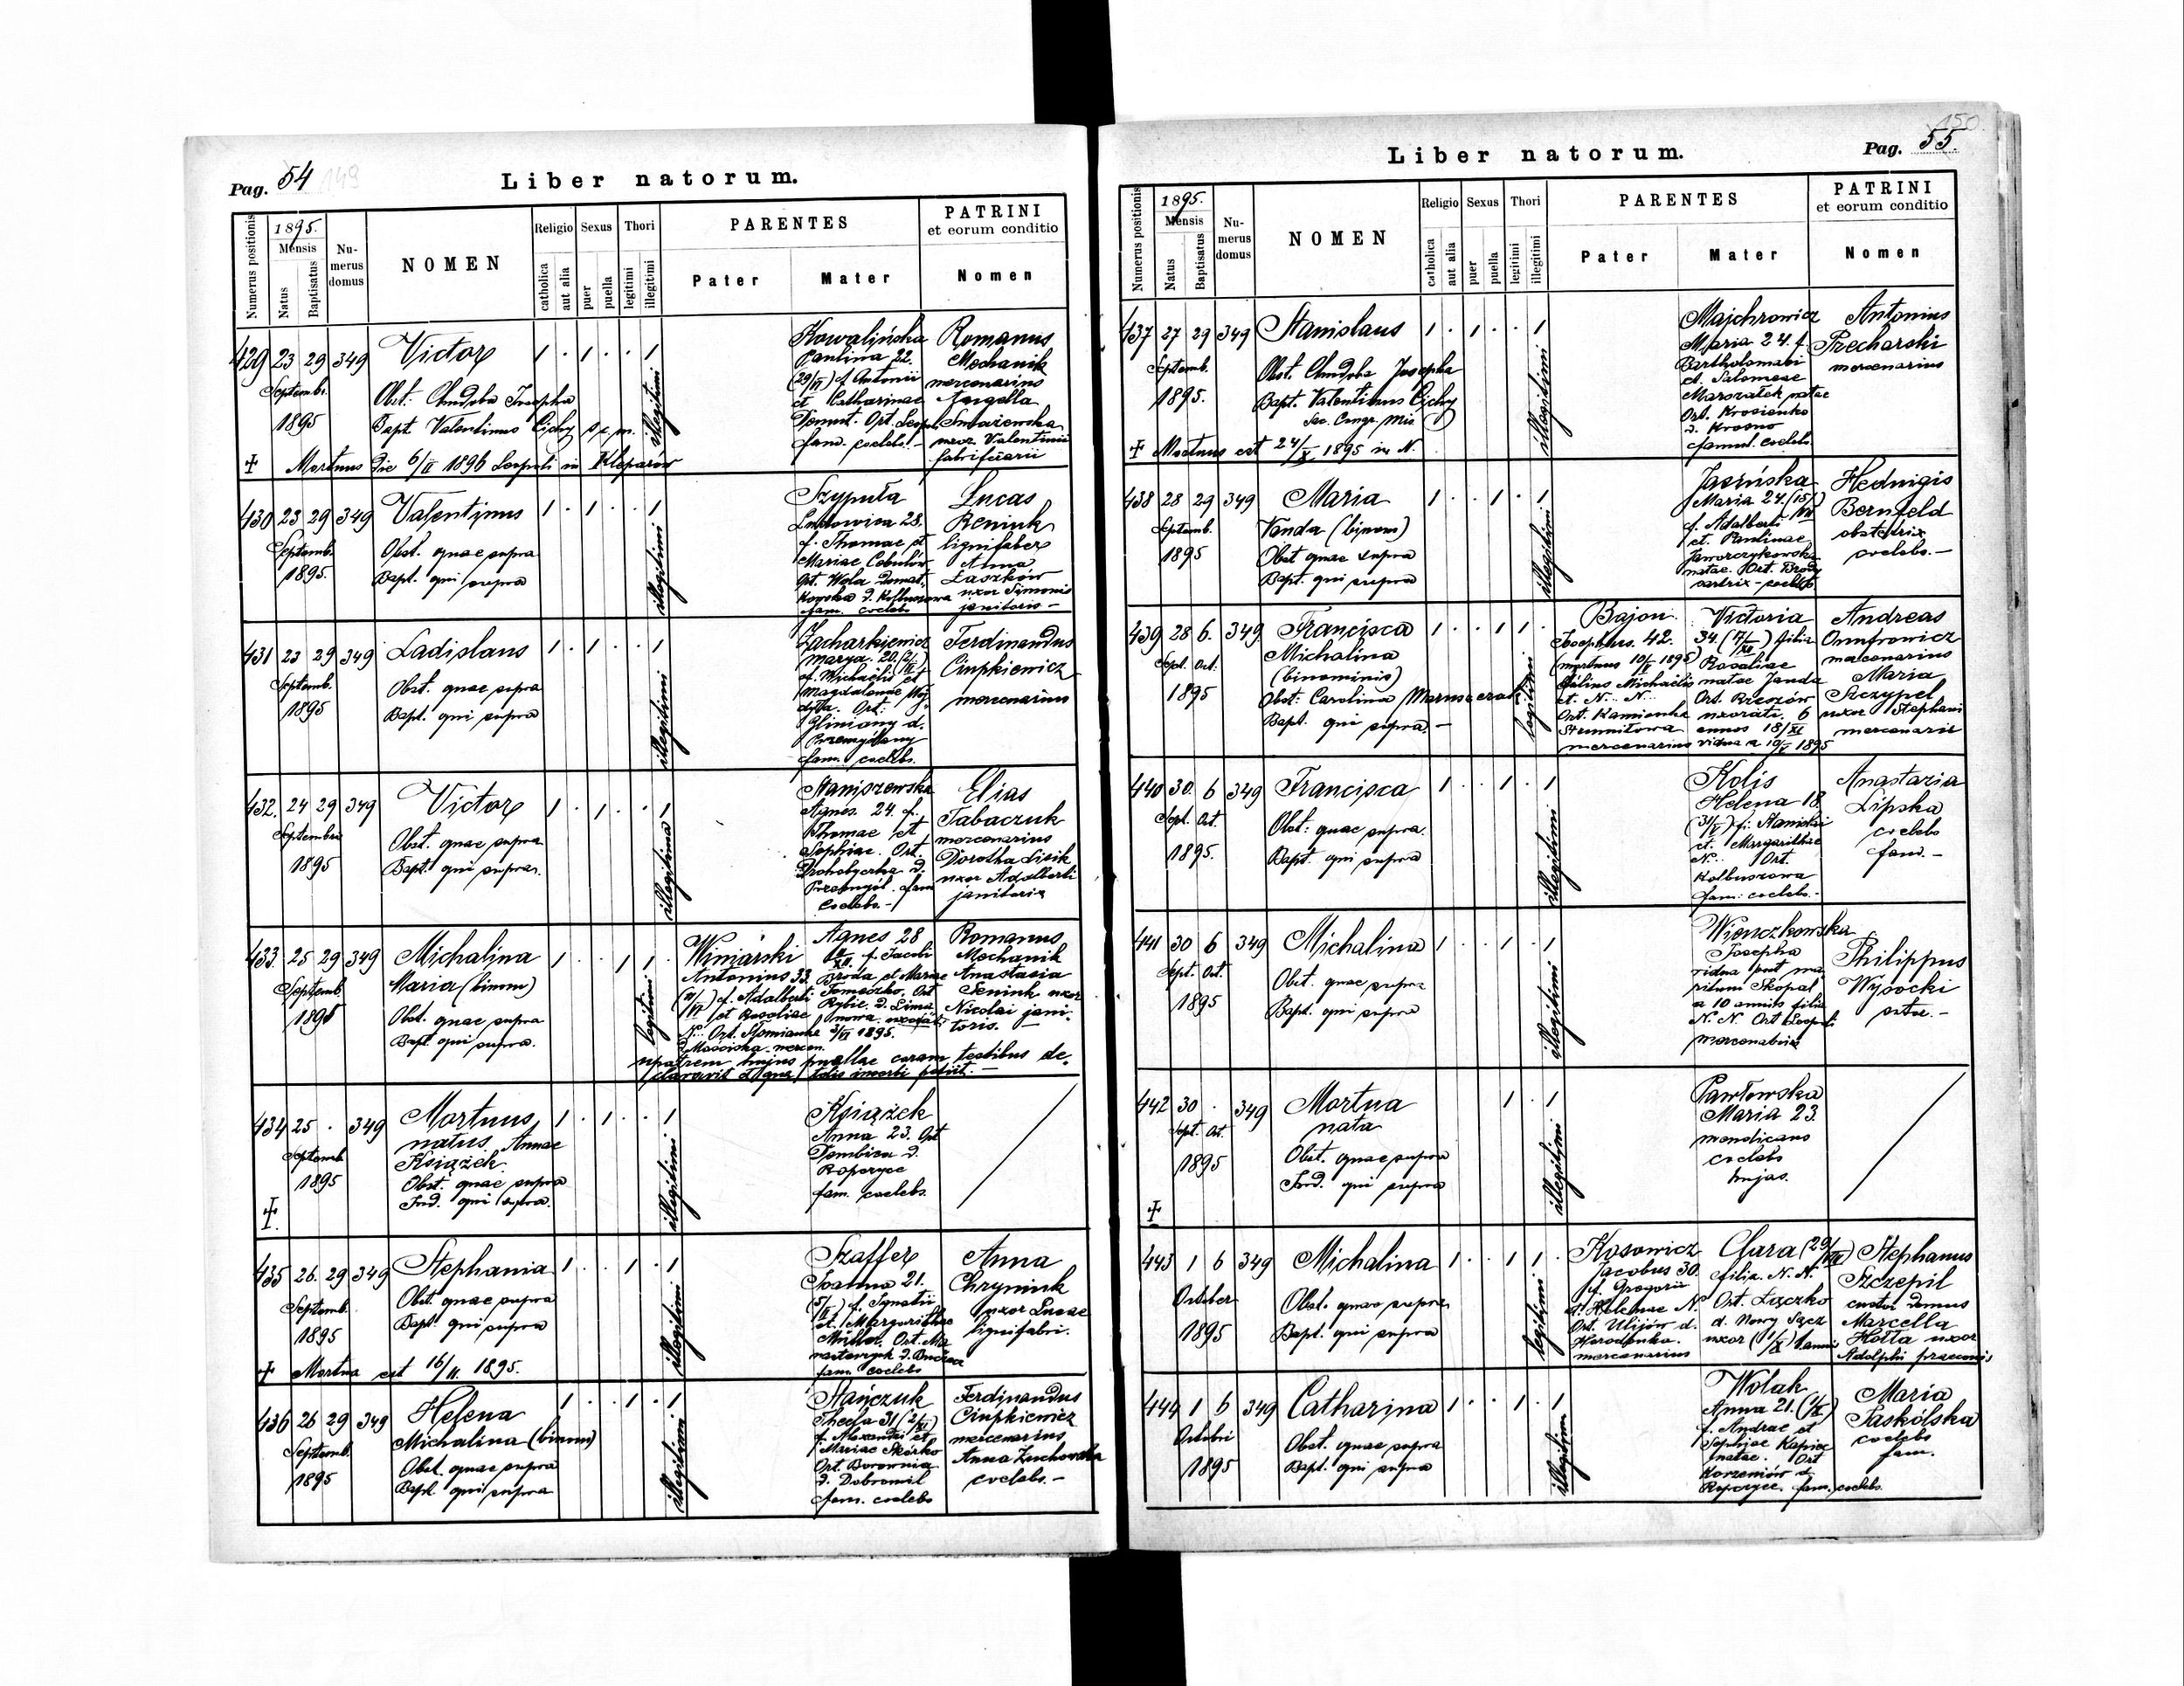 Pag. 54 149
Liber natorum.
Numerus positionis
1895.
Mensis
Natus
Baptisatus
Nu-
merus
domus
NOMEN
Religio
catholica
aut alia
Sexus
puer
puella
Thori
legitimi
illegitimi
PARENTES
Pater
Mater
PATRINI
et eorum conditio
Nomen
429 23 29 349 Victor 1 . 1 . . 1
Septembr.
1895
Obst: Chudoba Josepha
Bapt. Valentinus Cichy s. c. m.
illegitimi
Kowalińska
Paulina 22.
f. Antonii
et Catharinae
fam. coelebs. -
Romanus
Mechanik
mercenarius
Angella
uxor Valentini
✝ Mortuus die 6/II 1896 Leopoli in Kleparów
430 23 29 349 Valentinus 1 . 1 . . 1
Septemb.
1895.
Obst. quae supra
Bapt. qui supra
illegitimi
Szyputa
Ludowica 28.
f. Thomae et
Mariae
Ort. Wola
fam. coelebs
Lucas
Reniuk
lignifaber
Anna
Laszków
uxor Simonis
janitoris -
431 23 29 349 Ladislaus 1 . 1 . . 1
Septemb.
1895
Obst. quae supra
Bapt. qui supra
illegitimi
Zacharkiewicz
Marya. 20.
f. Michaelis et
Magdalenae
Ort:
Gliniany d.
Przemyślany
fam. coelebs.
Ferdinandus
Ciupkiewicz
mercenarius
432. 24 29 349 Victor 1 . 1 . . 1
Septembris
1895
Obst. quae supra
Bapt. qui supra.
illegitima
Staniszewska
Agnes. 24. f.
Thomae et
Sophiae. Ort.
d.
fam
coelebs. -
Elias
Tabaczuk
mercenarius
Dorothea Lisik
uxor Adalberti
janitoris
433. 25 29 349 Michalina 1 . . 1 1 .
Septemb
1895
Maria (binom)
Obst. quae supra
Bapt. qui supra.
legitimi
Winiarski
Antonius 33.
f. Adalberti
et Rosaliae
N.. Ort.
Mościska. mercen.
Agnes 28
f. Jacobi
Broda et Mariae
Ort
Rybie. d. Lima
nowa
3/VI 1895.
Romanus
Mechanik
Anastasia
Seniuk uxor
Nicolai jani-
toris. -
patrem hujus puellae coram testibus de-
claravit
434 25 . 349 Mortuus 1 . 1 . . 1
Septemb
1895
natus Annae
Książek.
Obst. quae supra
Ind. qui supra.
✝
illegitimi
Książek
Anna 23. Ort
Dembica d.
Ropczyce
fam. coelebs.
435 26. 29 349 Stephania 1 . . 1 . 1
Septemb.
1895
Obst. quae supra
Bapt. qui supra
illegitimi
Szaffer
Joanna 21.
f. Ignatii
et Margarithae
Müller. Ort.
fam. coelebs
Anna
Chryniuk
uxor Lucae
lignifabri.
✝ Mortua est 16/11. 1895.
436 26 29 349 Helena 1 . . 1 . 1
Septemb.
1895
Michalina (binom)
Obst. quae supra
Bapt. qui supra
illegitimi
Stańczuk
Thecla 31
f. Alexandri et
Mariae Skórko
Ort. Borownia
d. Dobromil
fam. coelebs
Ferdinandus
Ciupkiewicz
mercenarius
Anna Zuchowska
coelebs. -
150
Pag. 55.
Liber natorum.
Numerus positionis
1895.
Mensis
Natus
Baptisatus
Nu-
merus
domus
NOMEN
Religio
catholica
aut alia
Sexus
puer
puella
Thori
legitimi
illegitimi
PARENTES
Pater
Mater
PATRINI
et eorum conditio
Nomen
437 27 29 349 Stanislaus 1 . 1 . . 1
Septemb.
1895.
Obst. Chudoba Josepha
Bapt. Valentinus Cichy
Sac. Congr. Mis
illegitimi
Majchrowicz
Maria 24. f.
Bartholomaei
et. Salomeae
Marszałek natae
Ort. Krosienko
d. Krosno
famul. coelebs.
Antonius
Piecharski
mercenarius
✝ Mortuus est 24/X 1895 in N.
438 28 29 349 Maria 1 . . 1 . 1
Septemb.
1895
Vanda (binom)
Obst quae supra
Bapt. qui supra
illegitimi
Jasińska
Maria 24.
f. Adalberti
et. Paulinae
Jaworczykowska
natae. Ort. Brody
sartrix - coelebs
Hedvigis
Bernfeld
obstetrix
coelebs. -
439 28 6. 349 Francisca 1 . . 1 1 .
Sept. Oct.
1895
Michalina
(binominis)
Obst: Carolina
Bapt. qui supra. -
legitimi
Bajon
Josephus. 42.
(mortuus 10/V 1895)
filius Michaelis
et. N.. N..
Ort. Kamionka
Strumiłowa
mercenarius
Victoria
34. filia
Rosaliae
natae Janda
Ort. Rzeszów
uxorati. 6
annos 18/XI
vidua a 10/V 1895
Andreas
Onufrowicz
mercenarius
Maria
Szczypel
uxor Stephani
mercenarii
440 30. 6 349 Francisca 1 . . 1 . 1
Sept. Oct.
1895.
Obst: quae supra.
Bapt. qui supra
illegitimi
Kolis
Helena 18.
(31/V) f: Stanislai
et. Margarithae
N.. Ort.
Kolbuszowa
fam: coelebs. -
Anastazia
Lipska
coelebs
fam. -
441 30 6 349 Michalina 1 . . 1 . 1
Sept. Oct.
1895
Obst. quae supra
Bapt. qui supra
illegitimi
Wienczkowska
Josepha
vidua post ma-
ritum Skopal
a 10 annis filia
N. N. Ort Leopoli
mercenaria
Philippus
Wysocki
442 30 . 349 Mortua 1 . 1
Sept. Oct.
1895
nata
Obst. quae supra
Ind. qui supra
✝
illegitimi
Pawłowska
Maria 23.
mendicans
coelebs
hujas.
443 1 6 349 Michalina 1 . . 1 1 .
October
1895
Obst. quae supra
Bapt. qui supra
legitimi
Kosowicz
Jacobus 30.
f. Gregorii
et. Helenae N.
Ort. Ulijów d.
Horodenka.
mercenarius
Clara
filia. N. N.
Ort. Łączko
d. Nowy Sącz
uxor
Stephanus
Szczepil
custos domus
Marcella
Hołta uxor
Adolphi praeconis
444 1 6 349 Catharina 1 . . 1 . 1
Octobri
1895
Obst. quae supra
Bapt. qui supra
illegitim
Wolak
Anna 21.
f. Andreae et
Sophiae
natae. Ort
Korzeniów d.
Ropczyce. fam. coelebs.
Maria
Paskólska
coelebs
fam.